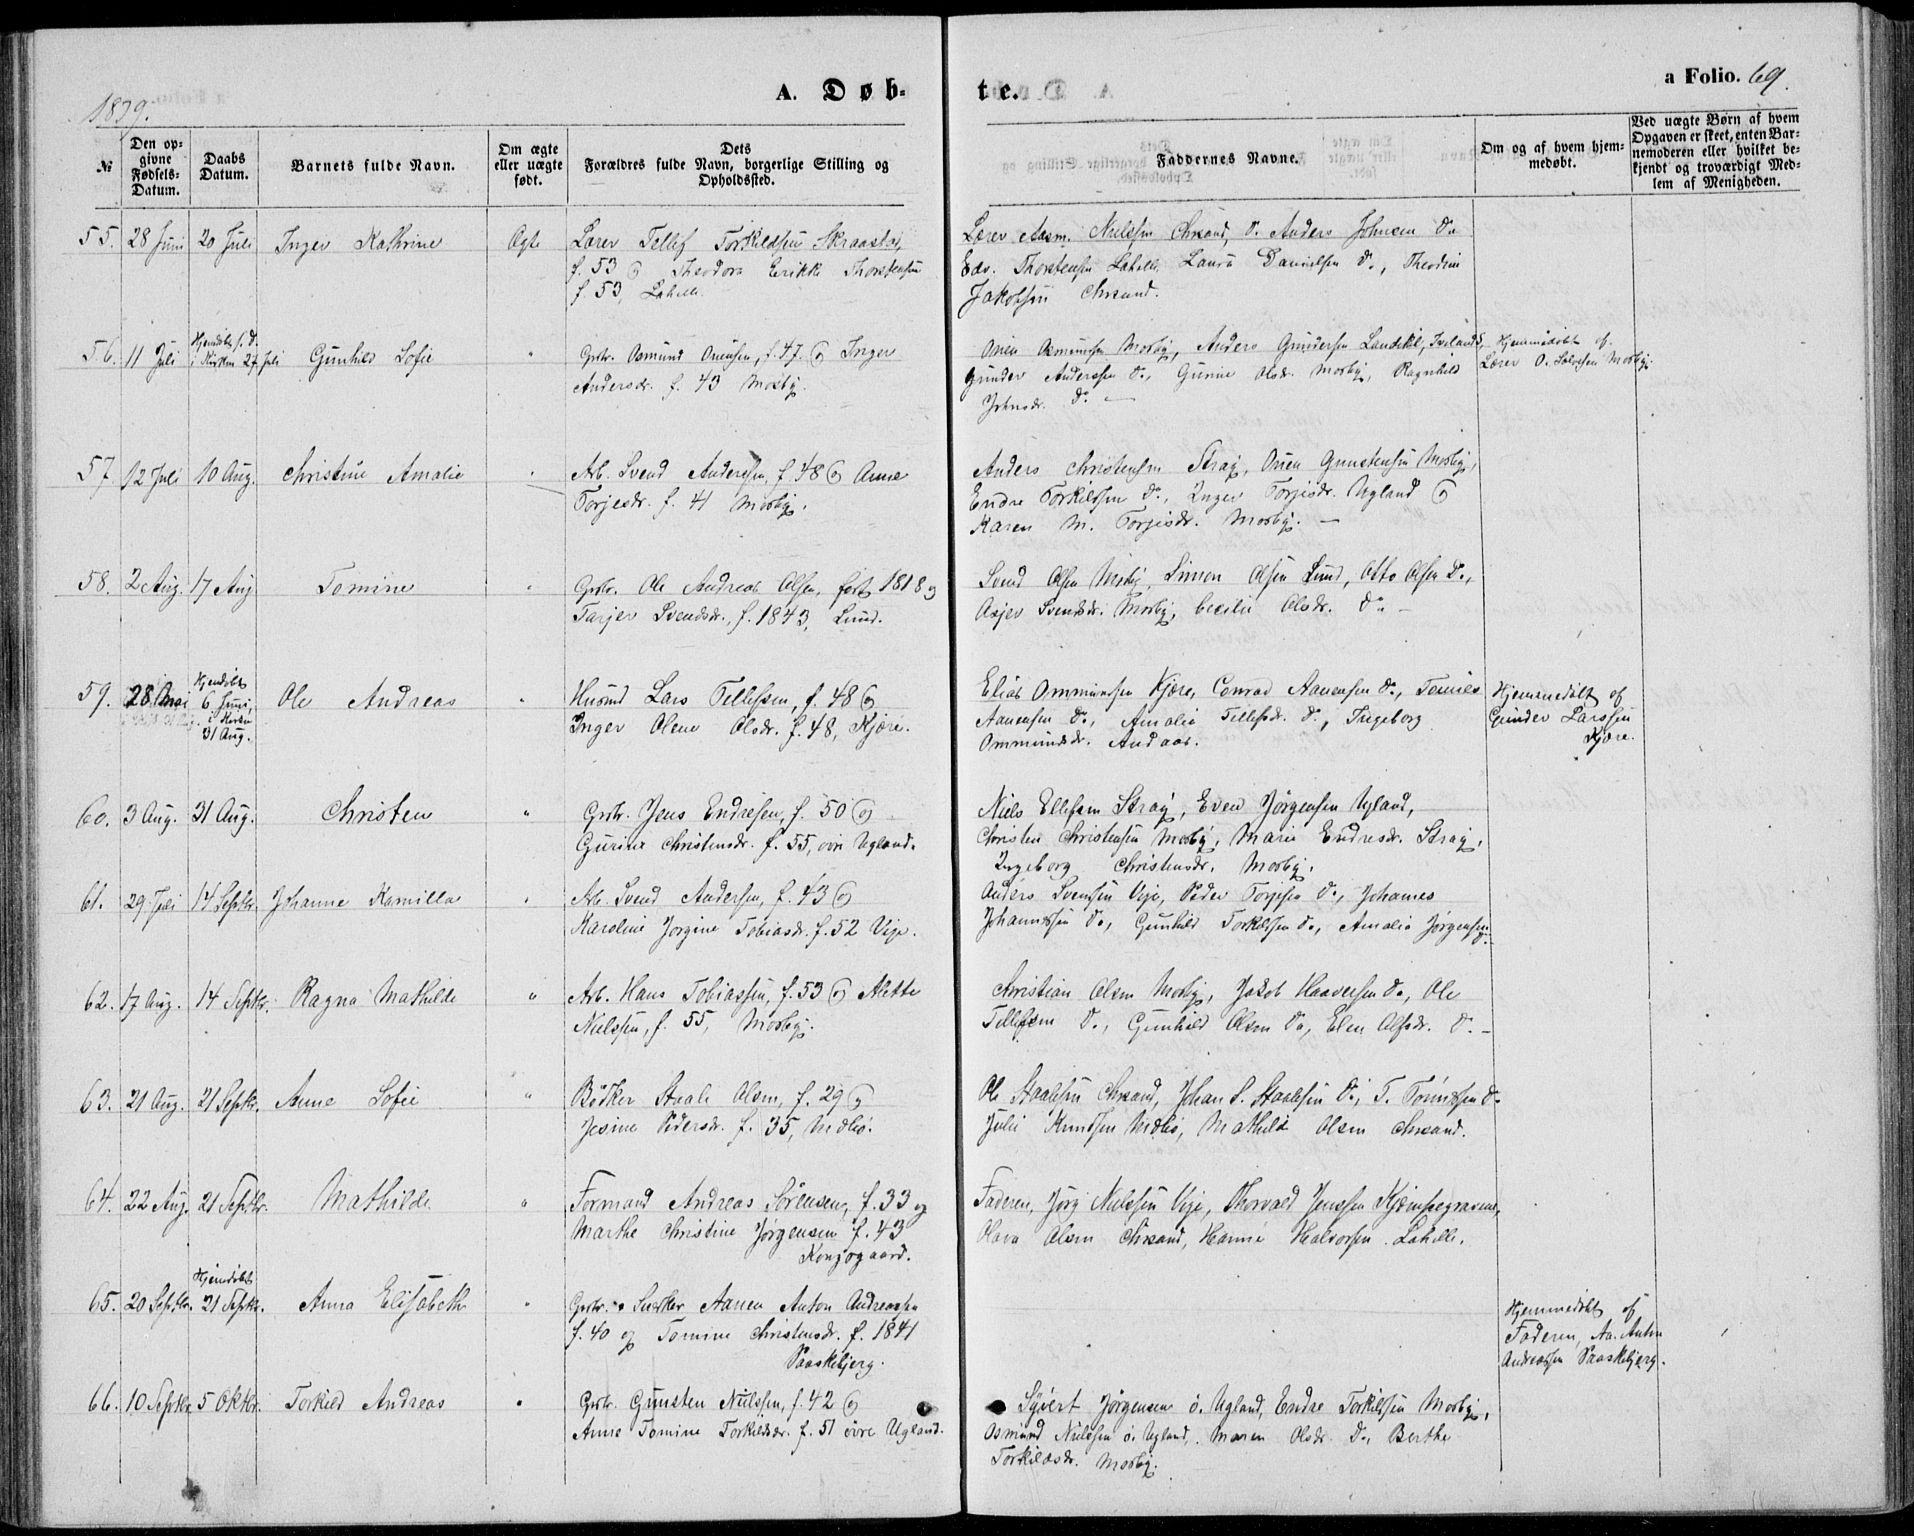 1879.
A. Døb-
te.
a Folio. 69.
№
Den op-
givne
Fødsels-
Datum.
Daabs
Datum.
Barnets fulde Navn.
Om ægte
eller uægte
født.
Dets
Forældres fulde Navn, borgerlige Stilling og
Opholdssted.
Faddernes Navne.
Om og af hvem hjem-
medøbt.
Ved uægte Børn af hvem
Opgaven er skeet, enten Bar-
nemoderen eller hvilket be-
kjendt og troværdigt Med-
lem af Menigheden.
55. 28 Juni 20 Juli Inger Kathrine Ægte Lærer Tellef Torkildsen Skraastad,
f. 53 og Theodora Erikke Thorstensen
f. 53, Lahelle.
Lærer Aasm. Nielsen Chrsand, Do. Anders Johnsen Do
Edv. Thorstensen Lahelle, Laura Danielsen Do., Theodini
Jakobsen Chrsand.
56. 11 Juli Hjemdøbt s. D.
i Kirken 27 Juli Gunhild Sofie " Grbr. Osmund Onensen, f. 47 og Inger
Andersdr. f. 43 Mosby.
Onen Osmundsen Mosby, Anders Gundersen Landekil, Iveland,
Gunder Anderssen Do., Gurine Olsdr. Mosby, Ragnhild
Johnsdr. Do. —
Hjemmedøbt af
Lærer O. Salvesen Mosby.
57. 12 Juli 10 Aug. Christine Amalie " Arb. Svend Anderssen, f. 48 og Anne
Torjesdr. f. 41 Mosby.
Anders Christensen Straj, Onen Gunstensen Mosby,
Endre Torkilssen Do., Inger Torjisdr. Ugland og
Karen M. Torjisdr. Mosby. —
58. 2 Aug. 17 Aug Tomine " Grbr. Ole Andreas Olsen, født 1818 og
Tarjer Svendsdr., f. 1843, Lund.
Svend Olsen Mosby, Simon Olsen Lund, Otto Olsen Do.,
Asjer Svendsdr. Mosby, Cecilie Olsdr. Do. —
59. 28 Mai Hjemdøbt
6 Juni,
i Kirken
31 Aug. Ole Andreas " Husmd Lars Tellefsen, f. 48 og
Inger Olene Olsdr. f. 48, Kjære.
Elias Ommundsen Kjære, Conrad Aanensen Do., Tønnes
Aanensen Do., Amalia Tellefsdr. Do., Ingeborg
Ommundsdr. Andaas.
Hjemmedøbt af
Gunder Larssen
Kjære.
60. 3 Aug. 31 Aug. Christen " Grbr. Jens Endresen, f. 50 og
Gurine Christensdr. f. 55, øvre Ugland.
Niels Ellefsen Straj, Even Jørgensen Ugland,
Christen Christensen Mosby, Marie Endresdr. Straj,
Ingeborg Christensdr. Mosby.
61. 29 Juli 14 Septbr. Johanne Kamilla " Arb. Svend Andersen, f. 43 og
Karoline Jørgine Tobiasdr. f. 52 Vige.
Anders Svensen Vige, Peder Torjesen Do., Johannes
Johannesen Do., Gunhild Torkilssen Do., Amalie Jørgensen
Do.
62. 17 Aug. 14 Septbr. Ragna Mathilde " Arb. Hans Tobiassen, f. 53 og Alette
Nielssen, f. 55, Mosby.
Christian Olsen Mosby, Jakob Haaversen Do., Ole
Tellefsen Do., Gunhild Olsen Do, Elen Olsdr. Do. —
63. 21 Aug. 21 Septbr. Anne Sofie " Bødker Staale Olsen, f. 29 og
Jesine Pedersdr. f. 35,
Ole Staalesen Chrsand, Johan S. Staalesen Do., T. Tønnessen Do
Julie Knudsen Mathilde Olsen Chrsand.
64. 22 Aug. 21 Septbr. Mathilde " Formand Andreas Sørensen, f. 33 og
Marthe Christine Jørgensen f. 43
Kongsgaard.
Faderen, Jørg Nielssen Vige, Thorvald Jenssen Kjempegravene,
Olava Olsen Chrsand, Hanne Halvorsen Lahelle.
65. 20 Septbr. Hjemdøbt
21 Septbr. Anna Elisabeth " Grbr. & Snedker Aanen Anton Andreassen
f. 40 og Tomine Christensdr. f. 1841
Paaskebjerg.
Hjemmedøbt af
Faderen, Aa. Anton
Andreassen Paaskebjerg.
66. 10 Septbr. 5 Oktbr. Torkild Andreas " Grbr. Gunsten Nielssen, f. 42 og
Anne Tomine Torkildsdr. f. 51 øvre Ugland.
Syvert Jørgensen ø. Ugland, Endre Torkilssen Mosby,
Osmund Nielssen ø. Ugland, Maren Olsdr. Do., Berthe
Torkildsdr. Mosby.